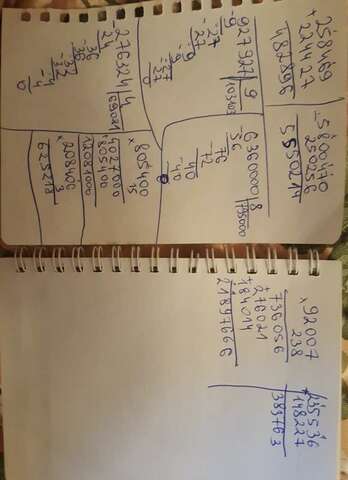 258469
+ 224427
482896
- 5800470
250256
5550214
- 927927 | 9
9 | 103103
- 27
27
- 9
9
- 27
27
0
- 6360000 | 8
56 | 795000
- 76
72
- 40
40
0
- 276324 | 4
24 | 69081
- 36
36
- 32
32
- 4
4
0
× 805400
15
+ 4027000
805400
12081000
× 208406
3
625218
× 92007
238
+ 736056
276021
+ 184014
21897666
+ 235536
148227
383763